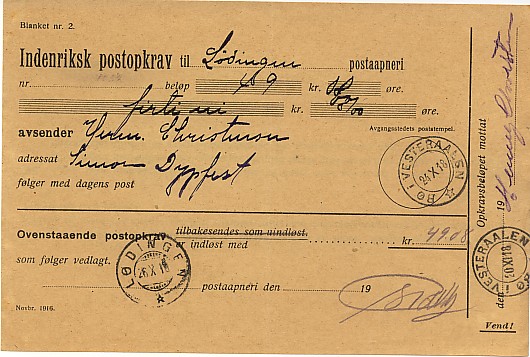 Blanket nr. 2.
Indenriksk postopkrav til Lødingen postaapneri
nr. beløp 49 kr. øre.
kr. øre.
avsender Herm. Christmon
Avgangsstedets poststempel.
adressat Simon Dypfest
følger med dagens post
BØ I VESTERAALEN
24 X 18
Ovenstaaende postopkrav tilbakesendes som uindløst.
indløst med kr. 4908
som følger vedlagt.
LØDINGEN
26 X 18
postaapneri den 19
Novbr. 1916.
Opkravsbeløpet mottat
den 19
BØ I VESTERAALEN
30 XI 18
Vend!